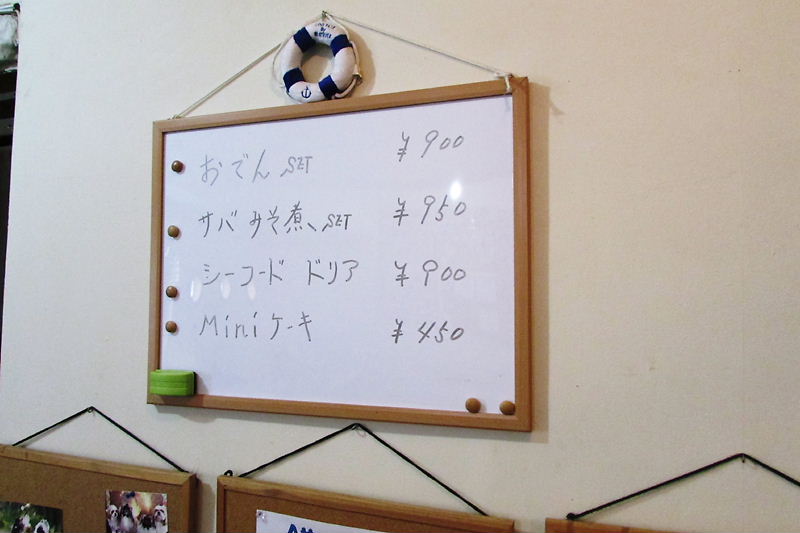 おでん SET ¥900
サバみそ煮 SET ¥950
シーフード ドリア ¥900
Mini ケーキ ¥450